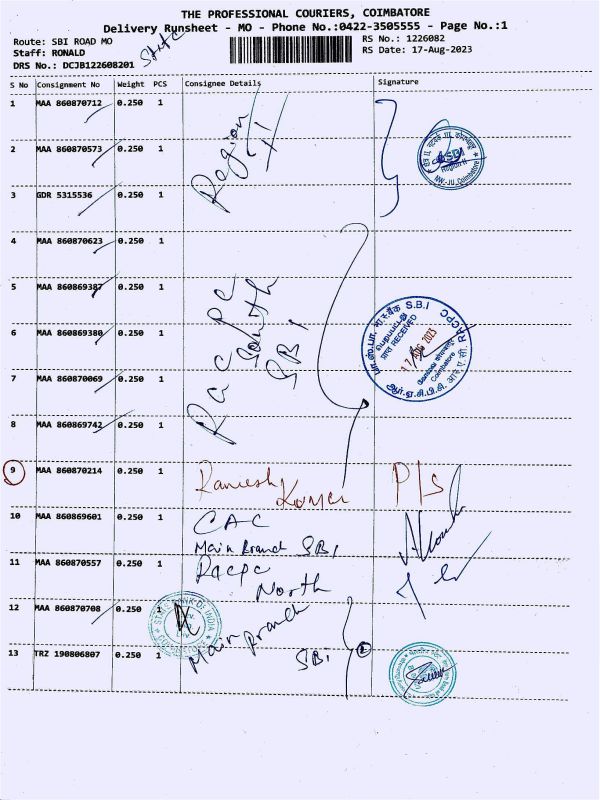 THE PROFESSIONAL COURIERS, COIMBATORE
Delivery Runsheet - MO - Phone No.:0422-3505555 - Page No.:1
Route: SBI ROAD MO
Staff: RONALD
DRS No.: DCJB122608201
RS No.: 1226082
RS Date: 17-Aug-2023
State
S No Consignment No Weight PCS Consignee Details Signature
1 MAA 860870712 0.250 1
2 MAA 860870573 0.250 1
3 GDR 5315536 0.250 1
Region II
SBI
Region II
NW-III, Coimbatore
4 MAA 860870623 0.250 1
5 MAA 860869387 0.250 1
6 MAA 860869380 0.250 1
7 MAA 860870069 0.250 1
8 MAA 860869742 0.250 1
Racpc
South
SBI
S.B.I RACPC
RECEIVED
17 AUG 2023
Coimbatore
9 MAA 860870214 0.250 1 Ramesh Kumar P/S
10 MAA 860869601 0.250 1 CAC
Main Branch SBI
11 MAA 860870557 0.250 1 Racpc
North
12 MAA 860870708 0.250 1
STATE BANK OF INDIA
COIMBATORE
Main branch
SBI
13 TRZ 190806807 0.250 1